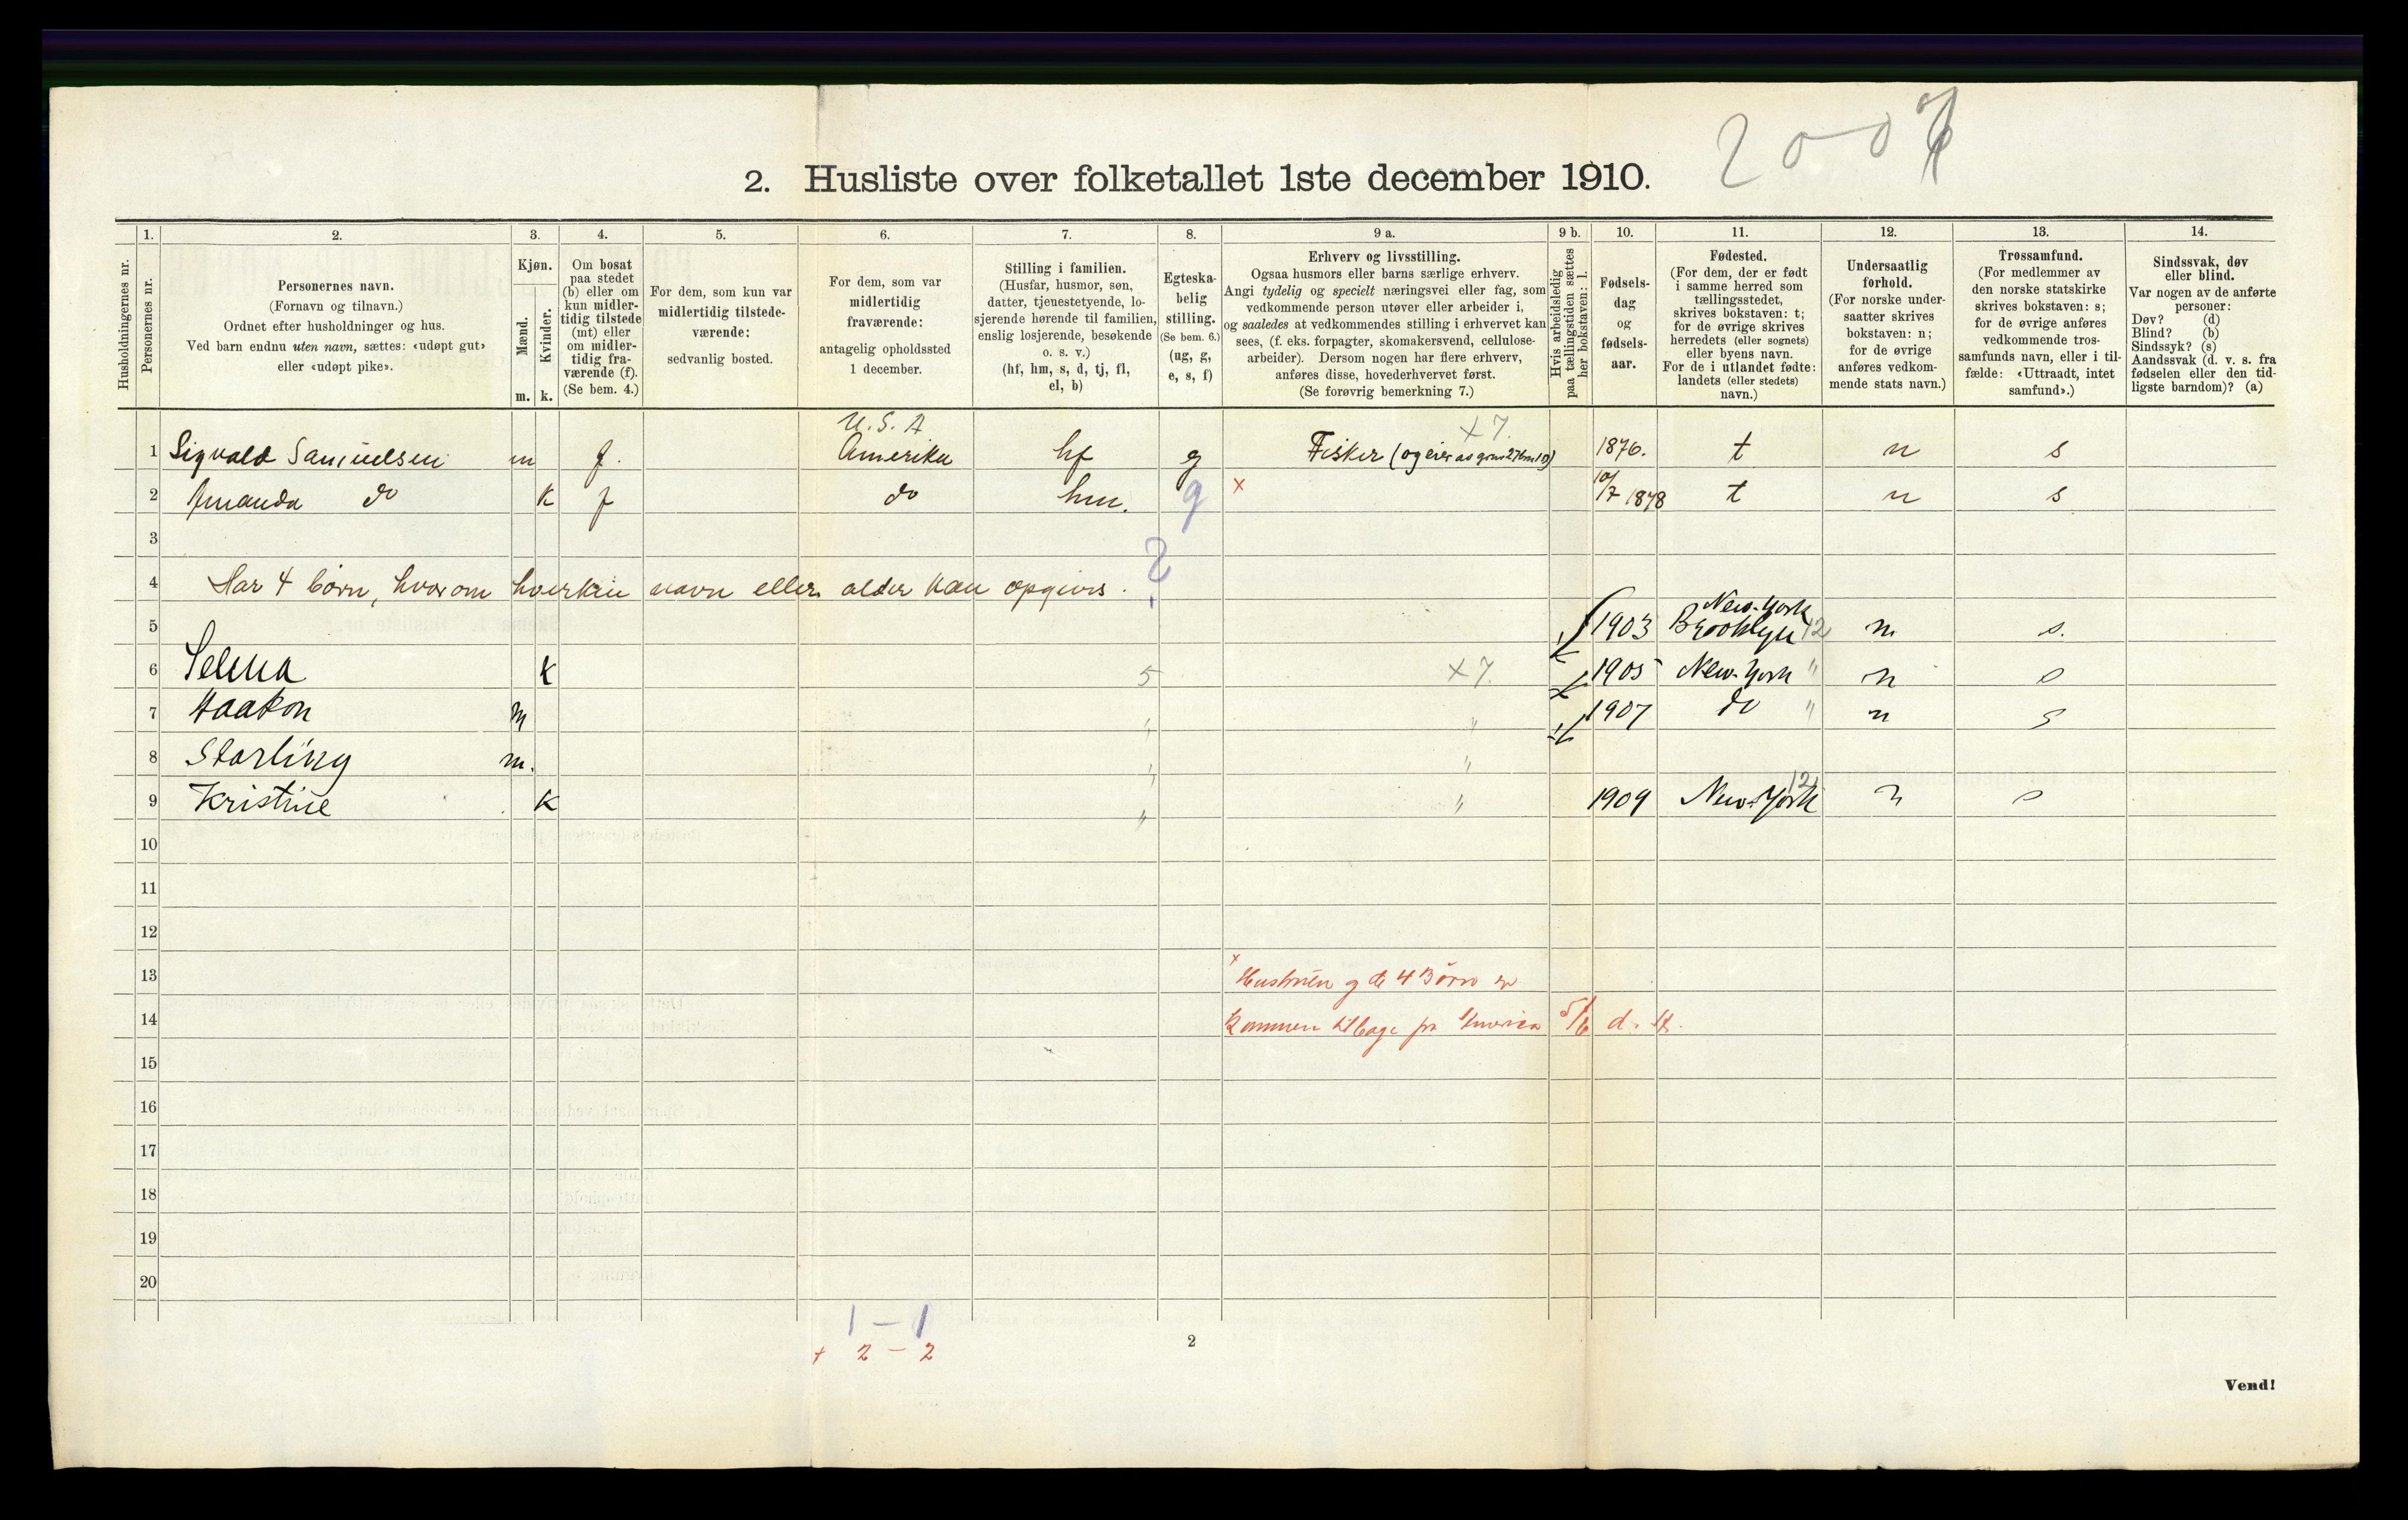 2. Husliste over folketallet 1ste december 1910.
1. 2. 3. 4. 5. 6. 7. 8. 9 a. 9 b. 10. 11. 12. 13. 14.
Husholdningernes nr.
Personernes nr.
Personernes navn.
(Fornavn og tilnavn.)
Ordnet efter husholdninger og hus.
Ved barn endnu uten navn, sættes: «udøpt gut»
eller «udøpt pike».
Kjøn.
Mænd.
Kvinder.
m. k.
Om bosat
paa stedet
(b) eller om
kun midler-
tidig tilstede
(mt) eller
om midler-
tidig fra-
værende (f).
(Se bem. 4.)
For dem, som kun var
midlertidig tilstede-
værende:
sedvanlig bosted.
For dem, som var
midlertidig
fraværende:
antagelig opholdssted
1 december.
Stilling i familien.
(Husfar, husmor, søn,
datter, tjenestetyende, lo-
sjerende hørende til familien,
enslig losjerende, besøkende
o. s. v.)
(hf, hm, s, d, tj, fl,
el, b)
Egteska-
belig
stilling.
(Se bem. 6.)
(ug, g,
e, s, f)
Erhverv og livsstilling.
Ogsaa husmors eller barns særlige erhverv.
Angi tydelig og specielt næringsvei eller fag, som
vedkommende person utøver eller arbeider i,
og saaledes at vedkommendes stilling i erhvervet kan
sees, (f. eks. forpagter, skomakersvend, cellulose-
arbeider). Dersom nogen har flere erhverv,
anføres disse, hovederhvervet først.
(Se forøvrig bemerkning 7.)
Hvis arbeidsledig
paa tællingstiden sættes
her bokstaven: l.
Fødsels-
dag
og
fødsels-
aar.
Fødested.
(For dem, der er født
i samme herred som
tællingsstedet,
skrives bokstaven: t;
for de øvrige skrives
herredets (eller sognets)
eller byens navn.
For de i utlandet fødte:
landets (eller stedets)
navn.)
Undersaatlig
forhold.
(For norske under-
saatter skrives
bokstaven: n;
for de øvrige
anføres vedkom-
mende stats navn.)
Trossamfund.
(For medlemmer av
den norske statskirke
skrives bokstaven: s;
for de øvrige anføres
vedkommende tros-
samfunds navn, eller i til-
fælde: «Uttraadt, intet
samfund».)
Sindssvak, døv
eller blind.
Var nogen av de anførte
personer:
Døv? (d)
Blind? (b)
Sindssyk? (s)
Aandssvak (d. v. s. fra
fødselen eller den tid-
ligste barndom)? (a)
U. S. A x 7.
1 Sigvald Samuelsen m f. Amerika hf g Fisker (og eier 1876. t n s
2 Amanda do k f do hm. g x 10/7 1878 t n s
3
4 Har 4 börn, hvorom hverken navn eller alder kan opgives. ?
New-York
5 1903 Brooklyn 12 n s.
6 Selma k 5 x 7. 1905 New-York " n s
7 Haakon m " " 1907 do " n s
8 Starling m. " "
9 Kristine k " " 1909 New-York 12 n s
10
11
12
13 x Hustruen og de 4 Börn er
14 kommen tilbage fra Amerika 5/6 d. A.
15
16
17
18
19
20
1 – 1
+ 2 – 2
2
Vend!